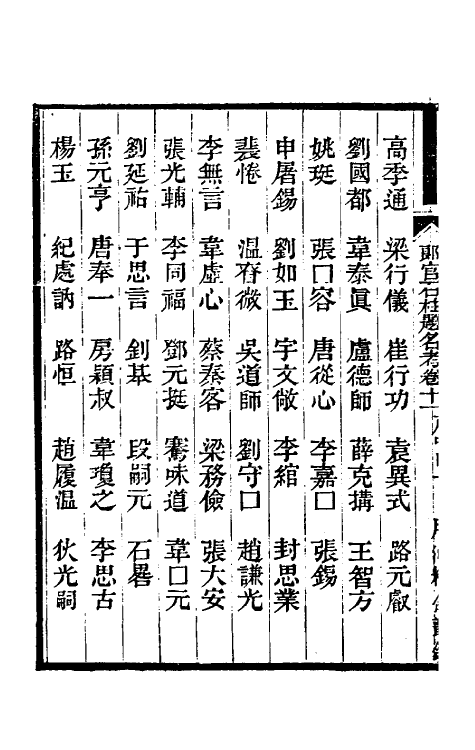 高季通 梁行儀 崔行功 袁異式 路元叡
劉國都 韋泰眞 盧德師 薛克搆 王智方
姚珽 張口容 唐從心 李嘉口 張錫
申屠錫 劉如玉 宇文儆 李綰 封思業
裴惓 温眘微 吳道師 劉守口 趙謙光
李無言 韋虛心 蔡秦客 梁務儉 張大安
張光輔 李同福 鄧元挺 騫味道 韋口元
劉延祐 于思言 劉基 段嗣元 石㬊
孫元亨 唐奉一 房穎叔 韋瓊之 李思古
楊玉 紀處訥 路恒 趙履溫 狄光嗣
郎官石柱題名考卷十一